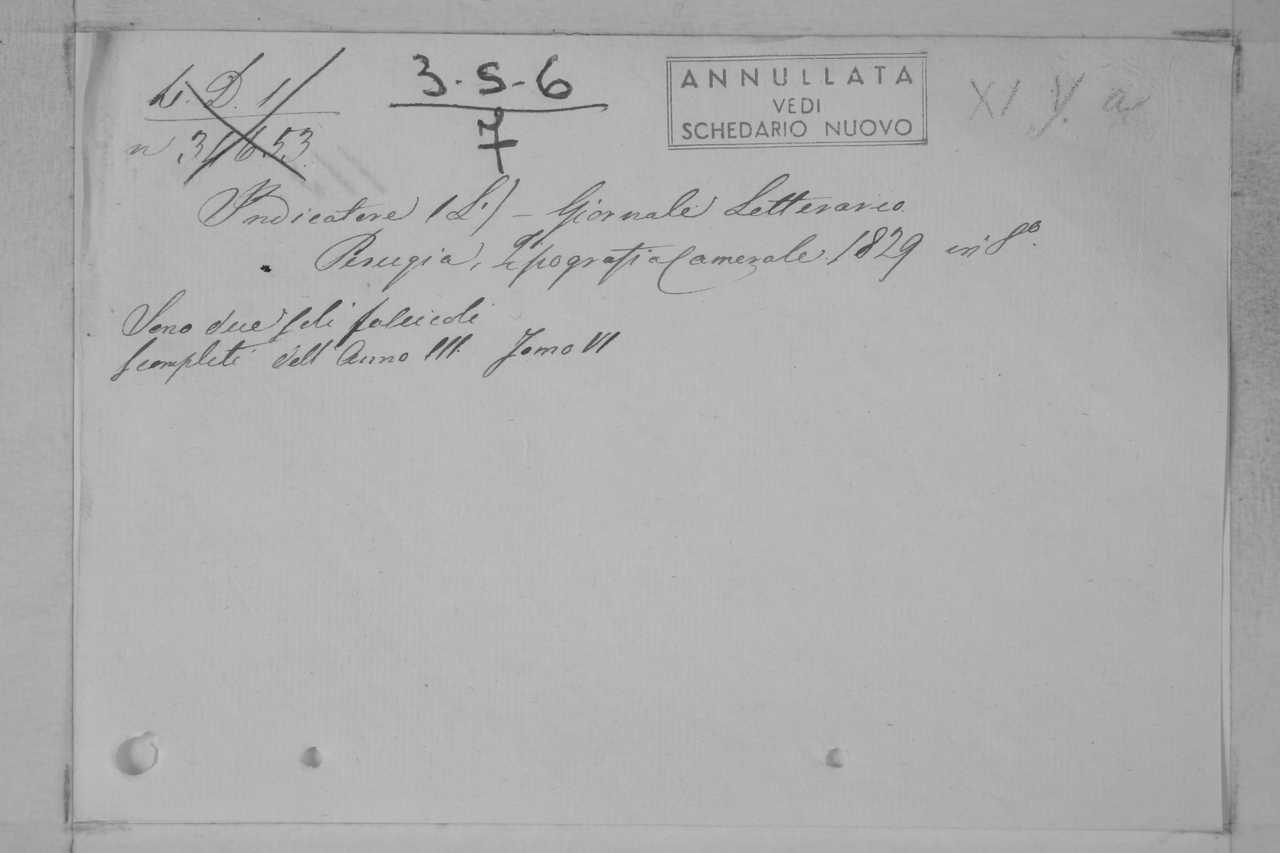 3-5-6
7
ANNULLATA
VEDI
SCHEDARIO NUOVO
XI V. a
Indicatore (L') – Giornale Letterario
Perugia, Tipografia Camerale. 1829 in 8º.
Sono due soli fascicoli
scompleti dell'Anno III. Tomo VI